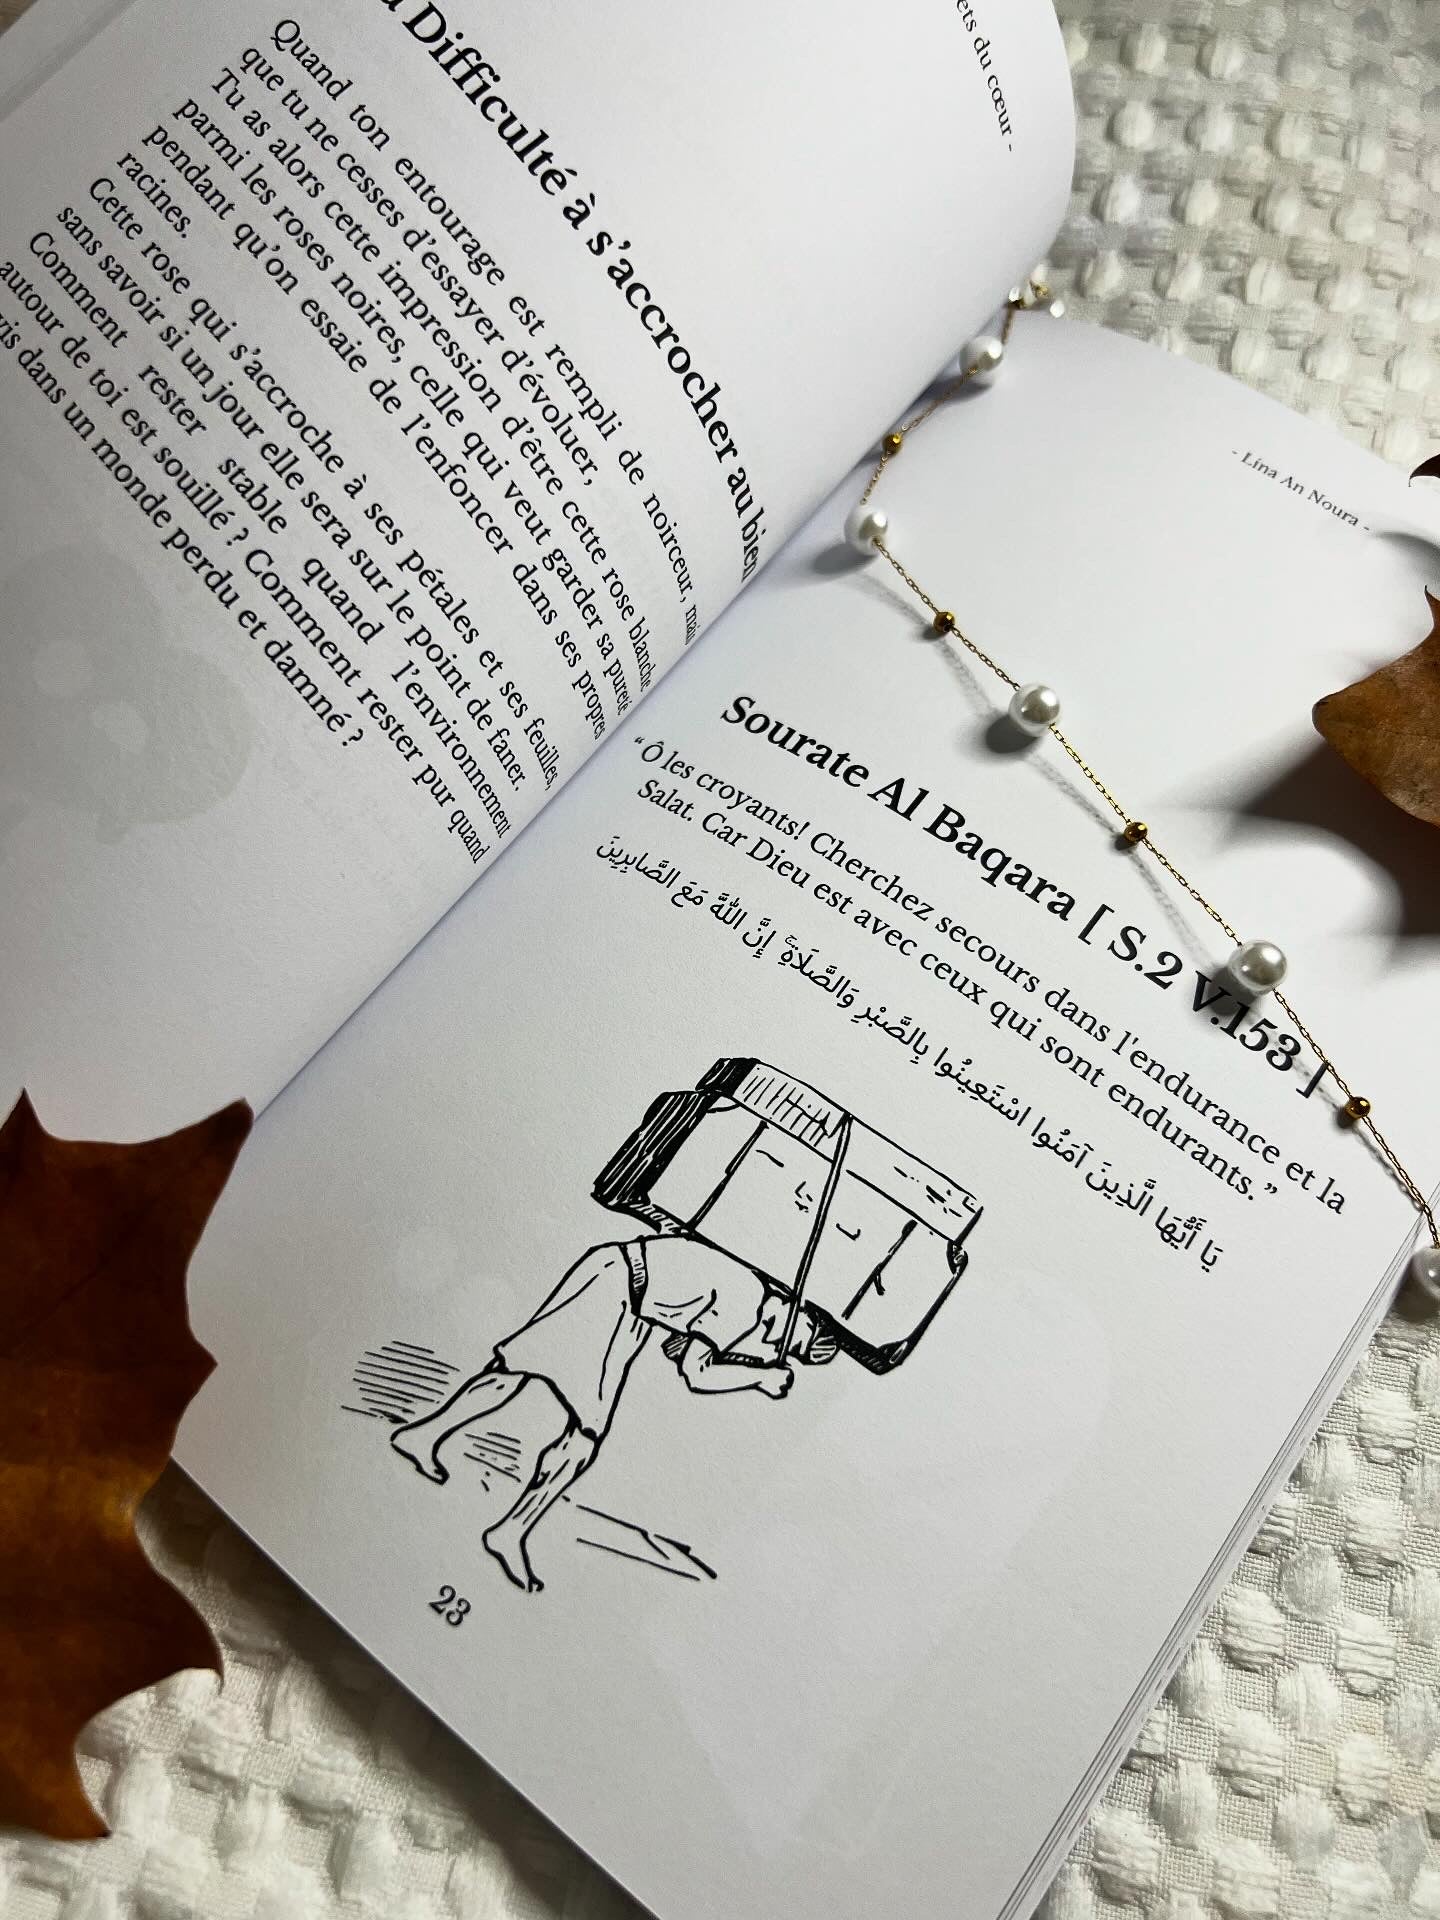 ets du cœur -
Difficulté à s'accrocher au bien
Quand ton entourage est rempli de noirceur, mais
que tu ne cesses d'essayer d'évoluer,
Tu as alors cette impression d'être cette rose blanche
parmi les roses noires, celle qui veut garder sa pureté
pendant qu'on essaie de l'enfoncer dans ses propres
racines.
Cette rose qui s'accroche à ses pétales et ses feuilles,
sans savoir si un jour elle sera sur le point de faner.
Comment rester stable quand l'environnement
autour de toi est souillé ? Comment rester pur quand
vis dans un monde perdu et damné ?
- Lina An Noura -
Sourate Al Baqara [ S.2 V.153 ]
“Ô les croyants! Cherchez secours dans l'endurance et la
Salat. Car Dieu est avec ceux qui sont endurants.”
يَا أَيُّهَا الَّذِينَ آمَنُوا اسْتَعِينُوا بِالصَّبْرِ وَالصَّلَاةِ ۚ إِنَّ اللَّهَ مَعَ الصَّابِرِينَ
23